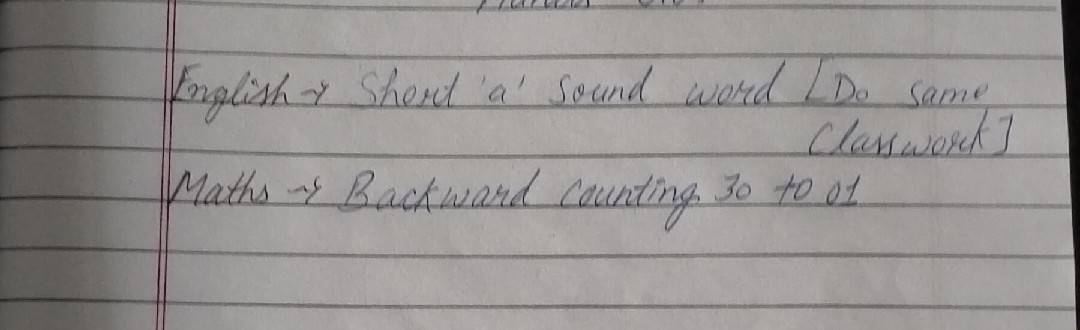 English → Short 'a' Sound word [Do same
Classwork]
Maths → Backward Counting 30 to 01